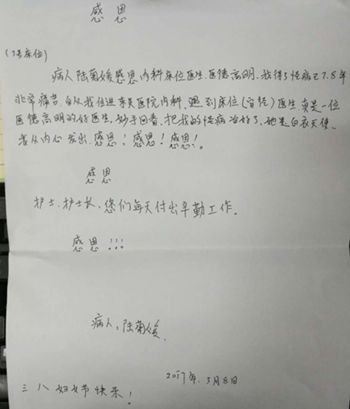 感恩
(1号床位)
病人陆菊媛感恩内科床位医生,医德高明,我得了怪病已7.8年
非常痛苦,自从我住进东吴医院内科,遇到床位()医生真是一位
医德高明的好医生,妙手回春,把我的怪病治好了,她是白衣天使,
我从内心发出,感恩!感恩!感恩!。
感恩
护士、护士长,您们每天付出辛勤工作。
感恩!!!
病人:陆菊媛
2017年.3月8日
三八妇女节快乐!